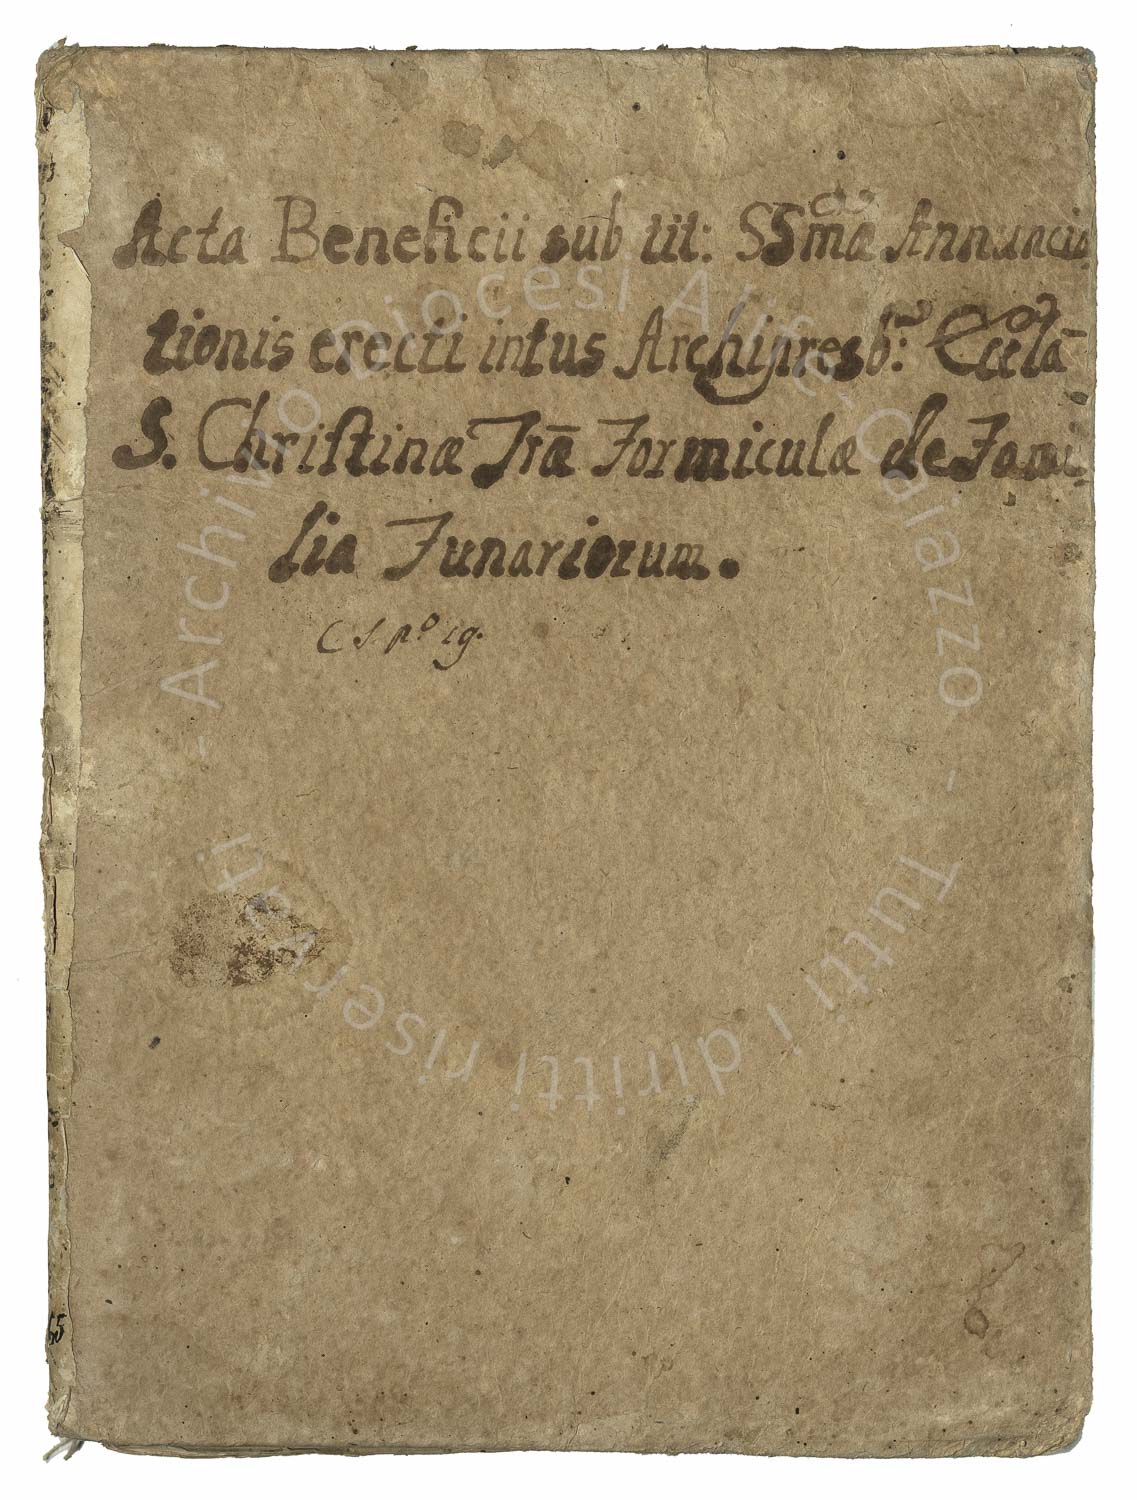 Acta Beneficii sub tit: SSmæ Annuncia
tionis erecti intus Archipresb: Eccla
S. Christinæ Trã Formiculæ de Fami
lia Funariorum.
C S. pº 19.
65
- Archivio Diocesi Alife-Caiazzo - Tutti i diritti riservati